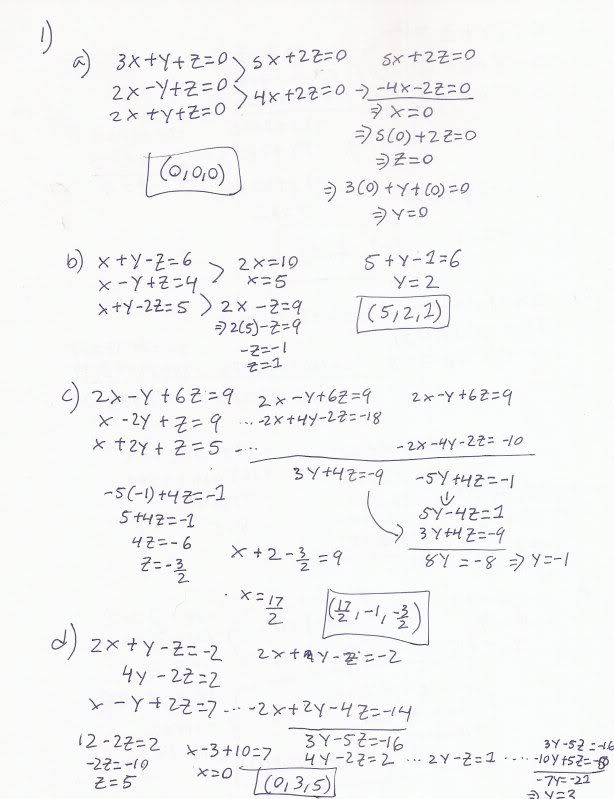 1)
a) 3x+y+z=0 > 5x+2z=0 5x+2z=0
2x-y+z=0 > 4x+2z=0 → -4x-2z=0
2x+y+z=0 ⇒ x=0
⇒ 5(0)+2z=0
(0,0,0) ⇒ z=0
⇒ 3(0)+y+(0)=0
⇒ y=0
b) x+y-z=6 > 2x=10 5+y-1=6
x-y+z=4 x=5 y=2
x+y-2z=5 > 2x-z=9 (5,2,1)
⇒ 2(5)-z=9
-z=-1
z=1
c) 2x-y+6z=9 2x-y+6z=9 2x-y+6z=9
x-2y+z=9 ... -2x+4y-2z=-18
x+2y+z=5 ... -2x-4y-2z=-10
3y+4z=-9 -5y+4z=-1
-5(-1)+4z=-1 5y-4z=1
5+4z=-1 3y+4z=-9
4z=-6 8y=-8 ⇒ y=-1
z=-3/2 x+2-3/2=9
x=17/2 (17/2,-1,-3/2)
d) 2x+y-z=-2 2x+y-z=-2
4y-2z=2
x-y+2z=7 ... -2x+2y-4z=-14
3y-5z=-16
12-2z=2 x-3+10=7 4y-2z=2 ... 2y-z=1 ... 3y-5z=-16
-2z=-10 x=0 (0,3,5) -10y+5z=
z=5 -7y=-21
⇒ y=3